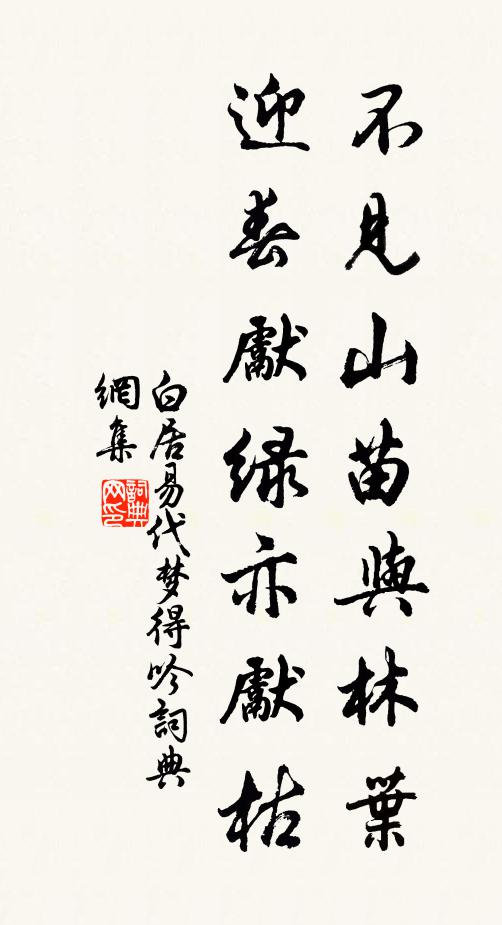 不見山苗與林葉
迎春獻緑亦獻枯
白居易代梦得吟詞典
網集
詞典
网印